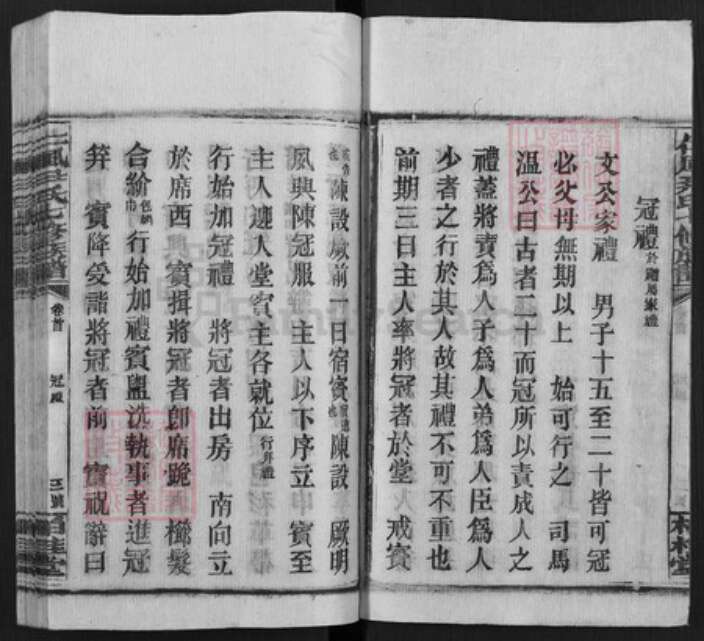 冠禮
文公家禮 男子十五至二十皆可冠
必父母無期以上 始可行之 司馬
溫公曰古者二十而冠所以責成人之
禮蓋將責爲人子爲人弟爲人臣爲人
少者之行於其人故其禮不可不重也
前期三日主人率將冠者於堂 戒賓
陳設厥前一日宿賓 陳設 厥明
夙興陳冠服 主人以下序立 賓至
主人迎入堂賓主各就位行拜禮
行始加冠禮 將冠者出房 南向立
於席西 賓揖將冠者卽席跪 櫛髮
合紒 行始加禮賓盥洗執事者進冠
笄 賓降受詣將冠者前 賓祝辭曰
尹氏七修族譜
卷首
冠禮
桂堂